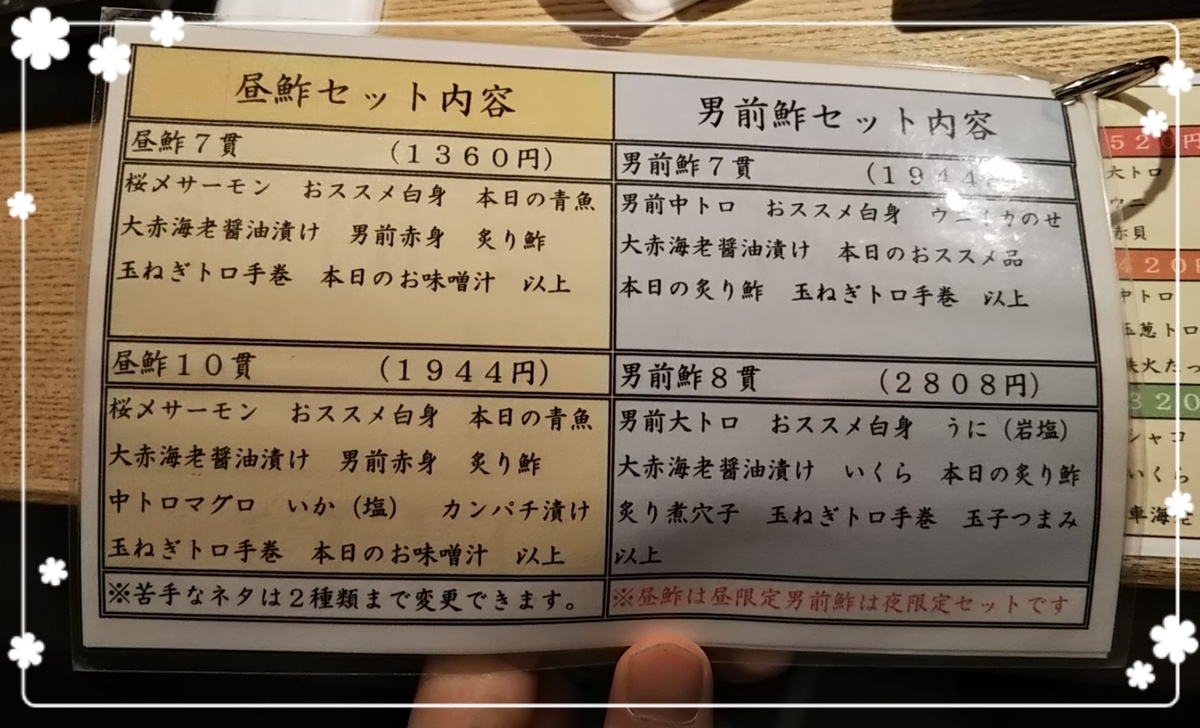 昼鮓セット内容
昼鮓7貫 （1360円）
桜〆サーモン おススメ白身 本日の青魚
大赤海老醤油漬け 男前赤身 炙り鮓
玉ねぎトロ手巻 本日のお味噌汁 以上
昼鮓10貫 （1944円）
桜〆サーモン おススメ白身 本日の青魚
大赤海老醤油漬け 男前赤身 炙り鮓
中トロマグロ いか（塩） カンパチ漬け
玉ねぎトロ手巻 本日のお味噌汁 以上
※苦手なネタは2種類まで変更できます。
男前鮓セット内容
男前鮓7貫 （1944
男前中トロ おススメ白身 ウニイカのせ
大赤海老醤油漬け 本日のおススメ品
本日の炙り鮓 玉ねぎトロ手巻 以上
男前鮓8貫 （2808円）
男前大トロ おススメ白身 うに（岩塩）
大赤海老醤油漬け いくら 本日の炙り鮓
炙り煮穴子 玉ねぎトロ手巻 玉子つまみ
以上
※昼鮓は昼限定男前鮓は夜限定セットです
520円
大トロ
ウニ
赤貝
420円
中トロ
玉葱トロ
鉄火たっ
320
シャコ
いくら
車海老